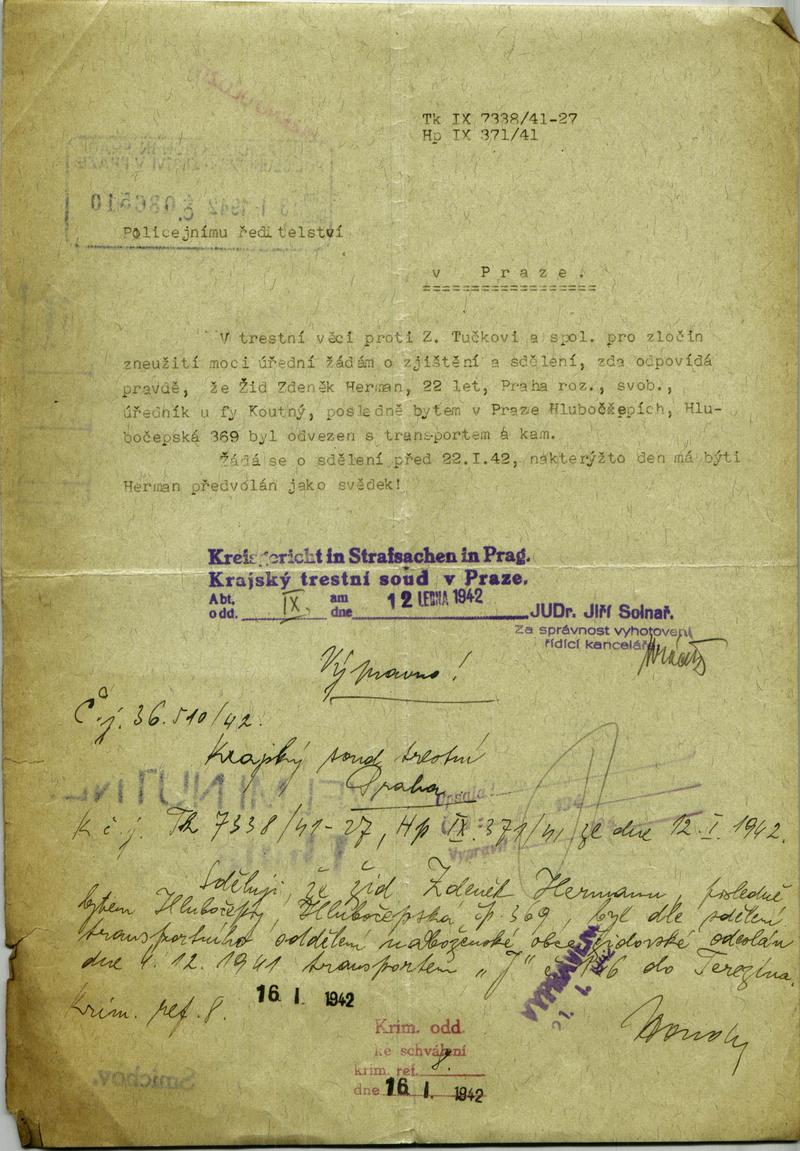 Tk IX 7338/41-27
Hp IX 371/41
Policejnímu ředitelství
v Praze.
V trestní věci proti Z. Tučkovi a spol. pro zločin
zneužití moci úřední žádám o zjištění a sdělení, zda odpovídá
pravdě, že Žid Zdeněk Herman, 22 let, Praha roz., svob.,
úředník u fy Koutný, posledně bytem v Praze Hlubočžepích, Hlu-
bočepská 369 byl odvezen s transportem a kam.
Žádá se o sdělení před 22.I.42, nakterýžto den má býti
Herman předvolán jako svědek!
Kreisgericht in Strafsachen in Prag.
Krajský trestní soud v Praze.
Abt. IX. am 12 LEDNA 1942
odd. dne JUDr. Jiří Solnař.
Za správnost vyhotovení
řídící kanceláře
Výpravno!
Č.j. 36.510/42.
Krajský soud trestní
Praha
K č.j. Tk 7338/41-27, Hp IX 371/41 ze dne 12.I.1942.
Sděluji, že žid Zdeněk Hermann, posledně
bytem Hlubočepy, Hlubočepská čp. 369, byl dle sdělení
transportního oddělení náboženské obce židovské odeslán
dne 12. 1941 transportem „J" do Terezína.
Krim. ref. 8. 16 I. 1942
VYPRAVENO
Krim. odd.
ke schválení
krim. ref. 8.
dne 16 I. 1942
Smíchov.